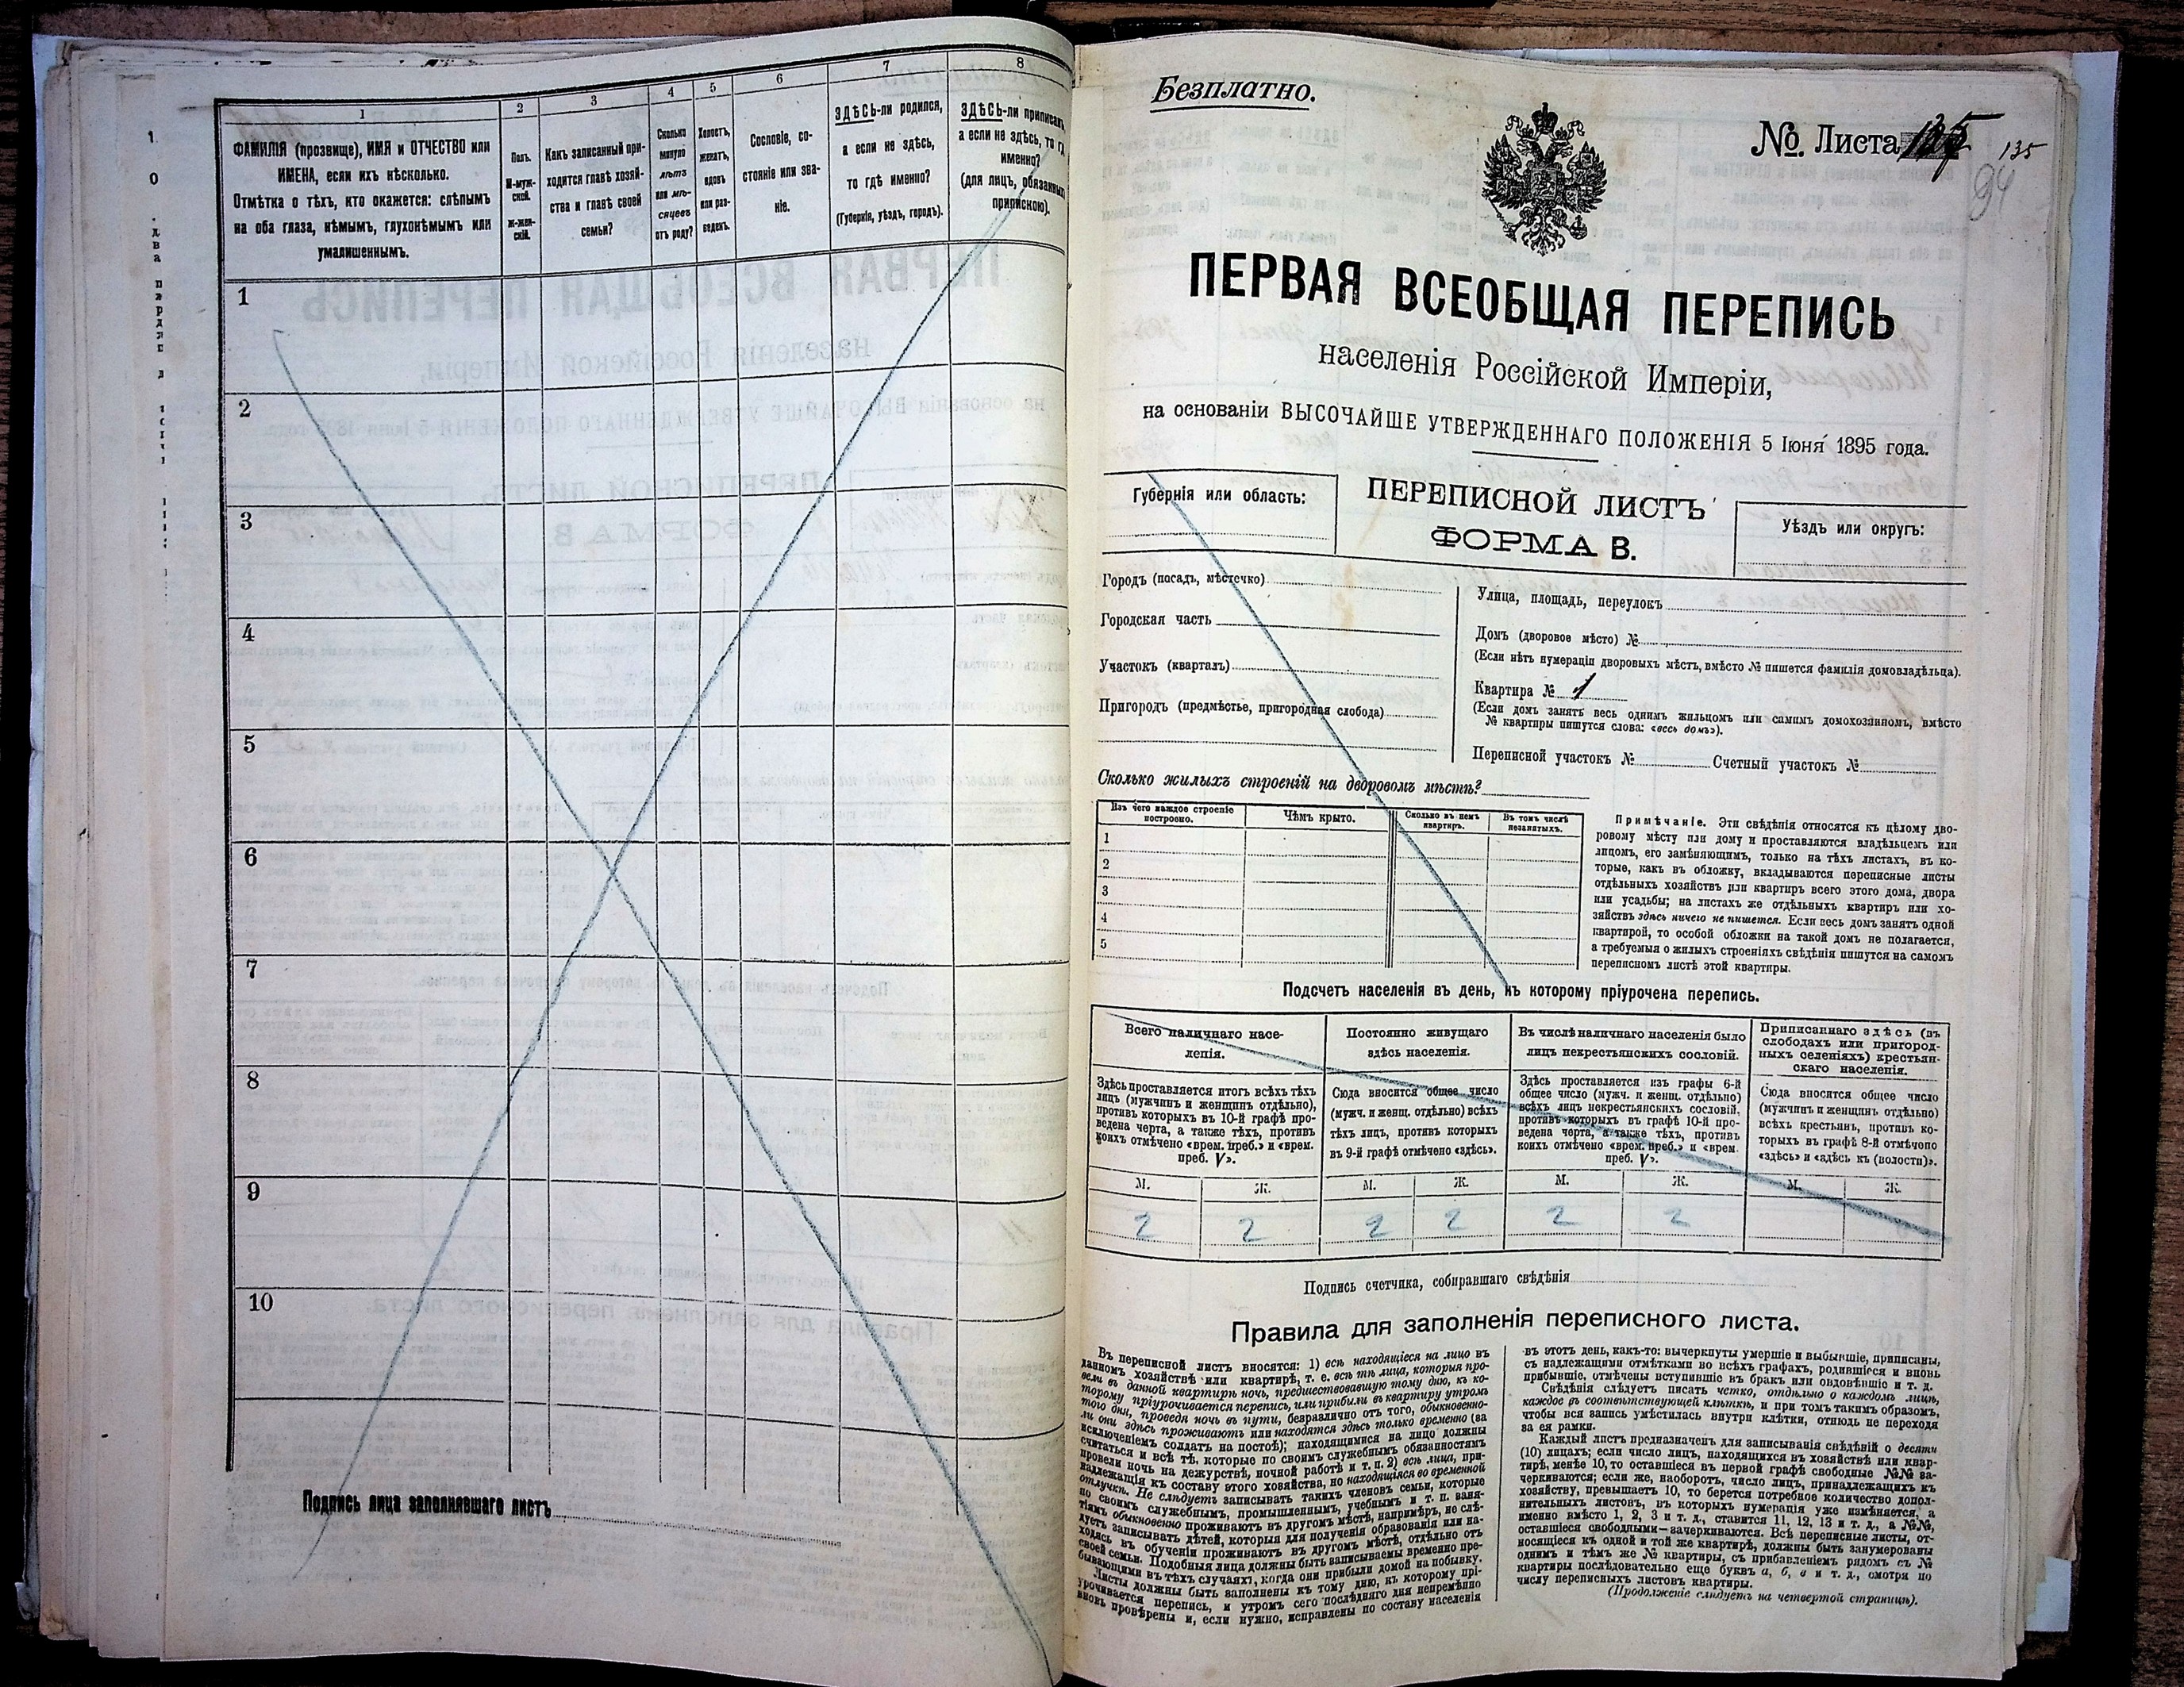 1
2
3
4
5
6
7
8
ФАМИЛІЯ (прозвище), ИМЯ и ОТЧЕСТВО или
ИМЕНА, если ихъ нѣсколько.
Отмѣтка о тѣхъ, кто окажется: слѣпымъ
на оба глаза, нѣмымъ, глухонѣмымъ или
умалишеннымъ.
Полъ.
М-муж-
ской.
Ж-жен-
скій.
Какъ записанный при-
ходится главѣ хозяй-
ства и главѣ своей
семьи?
Сколько
минуло
лѣтъ
или мѣ-
сяцевъ
отъ роду?
Холостъ,
женатъ,
вдовъ
или раз-
веденъ.
Сословіе, со-
стояніе или зва-
ніе.
ЗДѢСЬ-ли родился,
а если не здѣсь,
то гдѣ именно?
(Губернія, уѣздъ, городъ).
ЗДѢСЬ-ли приписанъ,
а если не здѣсь, то гдѣ
именно?
(для лицъ, обязанныхъ
припискою).
1
2
3
4
5
6
7
8
9
10
Подпись лица заполнявшаго листъ
Безплатно.
№ Листа
135
94
ПЕРВАЯ ВСЕОБЩАЯ ПЕРЕПИСЬ
населенія Россійской Имперіи,
на основаніи ВЫСОЧАЙШЕ УТВЕРЖДЕННАГО ПОЛОЖЕНІЯ 5 Іюня 1895 года.
Губернія или область:
ПЕРЕПИСНОЙ ЛИСТЪ
ФОРМА В.
Уѣздъ или округъ:
Городъ (посадъ, мѣстечко)
Городская часть
Участокъ (кварталъ)
Пригородъ (предмѣстье, пригородная слобода)
Улица, площадь, переулокъ
Домъ (дворовое мѣсто) №
(Если нѣтъ нумераціи дворовыхъ мѣстъ, вмѣсто № пишется фамилія домовладѣльца).
Квартира № 1
(Если домъ занятъ весь однимъ жильцомъ или самимъ домохозяиномъ, вмѣсто
№ квартиры пишутся слова: «весь домъ»).
Переписной участокъ № Счетный участокъ №
Сколько жилыхъ строеній на дворовомъ мѣстѣ?
Изъ чего каждое строеніе
построено.
Чѣмъ крыто.
Сколько въ немъ
квартиръ.
Въ томъ числѣ
незанятыхъ.
1
2
3
4
5
Примѣчаніе. Эти свѣдѣнія относятся къ цѣлому дво-
ровому мѣсту или дому и проставляются владѣльцемъ или
лицомъ, его замѣняющимъ, только на тѣхъ листахъ, въ ко-
торые, какъ въ обложку, вкладываются переписные листы
отдѣльныхъ хозяйствъ или квартиръ всего этого дома, двора
или усадьбы; на листахъ же отдѣльныхъ квартиръ или хо-
зяйствъ здѣсь ничего не пишется. Если весь домъ занятъ одной
квартирой, то особой обложки на такой домъ не полагается,
а требуемыя о жилыхъ строеніяхъ свѣдѣнія пишутся на самомъ
переписномъ листѣ этой квартиры.
Подсчетъ населенія въ день, къ которому пріурочена перепись.
Всего наличнаго насе-
ленія.
Постоянно живущаго
здѣсь населенія.
Въ числѣ наличнаго населенія было
лицъ некрестьянскихъ сословій.
Приписаннаго здѣсь (въ
слободахъ или пригород-
ныхъ селеніяхъ) крестьян-
скаго населенія.
Здѣсь проставляется итогъ всѣхъ тѣхъ
лицъ (мужчинъ и женщинъ отдѣльно),
противъ которыхъ въ 10-й графѣ про-
ведена черта, а также тѣхъ, противъ
коихъ отмѣчено «врем. преб.» и «врем.
преб. V».
Сюда вносится общее число
(мужч. и женщ. отдѣльно) всѣхъ
тѣхъ лицъ, противъ которыхъ
въ 9-й графѣ отмѣчено «здѣсь».
Здѣсь проставляется изъ графы 6-й
общее число (мужч. и женщ. отдѣльно)
всѣхъ лицъ некрестьянскихъ сословій,
противъ которыхъ въ графѣ 10-й про-
ведена черта, а также тѣхъ, противъ
коихъ отмѣчено «врем. преб.» и «врем.
преб. V».
Сюда вносится общее число
(мужчинъ и женщинъ отдѣльно)
всѣхъ крестьянъ, противъ ко-
торыхъ въ графѣ 8-й отмѣчено
«здѣсь» и «здѣсь къ (волости)».
М. Ж. М. Ж. М. Ж. М. Ж.
2 2 2 2 2 2
Подпись счетчика, собиравшаго свѣдѣнія
Правила для заполненія переписного листа.
Въ переписной листъ вносятся: 1) всѣ находящіеся на лицо въ
данномъ хозяйствѣ или квартирѣ, т. е. всѣ тѣ лица, которыя про-
вели въ данной квартирѣ ночь, предшествовавшую тому дню, къ ко-
торому пріурочивается перепись, или прибыли въ квартиру утромъ
того дня, проведя ночь въ пути, безразлично отъ того, обыкновенно-
ли они здѣсь проживаютъ или находятся здѣсь только временно (за
исключеніемъ солдатъ на постоѣ); находящимися на лицо должны
считаться и всѣ тѣ, которые по своимъ служебнымъ обязанностямъ
провели ночь на дежурствѣ, ночной работѣ и т. п. 2) всѣ лица, при-
надлежащія къ составу этого хозяйства, но находящіяся во временной
отлучкѣ. Не слѣдуетъ записывать такихъ членовъ семьи, которые
по своимъ служебнымъ, промышленнымъ, учебнымъ и т. п. заня-
тіямъ обыкновенно проживаютъ въ другомъ мѣстѣ, напримѣръ, не слѣ-
дуетъ записывать дѣтей, которыя для полученія образованія или на-
ходясь въ обученіи проживаютъ въ другомъ мѣстѣ, отдѣльно отъ
своей семьи. Подобныя лица должны быть записываемы временно пре-
бывающими въ тѣхъ случаяхъ, когда они прибыли домой на побывку.
Листы должны быть заполнены къ тому дню, къ которому прі-
урочивается перепись, и утромъ сего послѣдняго дня непремѣнно
вновь провѣрены и, если нужно, исправлены по составу населенія
въ этотъ день, какъ-то: вычеркнуты умершіе и выбывшіе, приписаны,
съ надлежащими отмѣтками во всѣхъ графахъ, родившіеся и вновь
прибывшіе, отмѣчены вступившіе въ бракъ или овдовѣвшіе и т. д.
Свѣдѣнія слѣдуетъ писать четко, отдѣльно о каждомъ лицѣ,
каждое въ соотвѣтствующей клѣткѣ, и при томъ такимъ образомъ,
чтобы вся запись умѣстилась внутри клѣтки, отнюдь не переходя
за ея рамки.
Каждый листъ предназначенъ для записыванія свѣдѣній о десяти
(10) лицахъ; если число лицъ, находящихся въ хозяйствѣ или квар-
тирѣ, менѣе 10, то оставшіеся въ первой графѣ свободные №№ за-
черкиваются; если же, наоборотъ, число лицъ, принадлежащихъ къ
хозяйству, превышаетъ 10, то берется потребное количество допол-
нительныхъ листовъ, въ которыхъ нумерація уже измѣняется, а
именно вмѣсто 1, 2, 3 и т. д., ставится 11, 12, 13 и т. д., а №№,
оставшіеся свободными—зачеркиваются. Всѣ переписные листы, от-
носящіеся къ одной и той же квартирѣ, должны быть занумерованы
однимъ и тѣмъ же № квартиры, съ прибавленіемъ рядомъ съ №
квартиры послѣдовательно еще буквъ а, б, в и т. д., смотря по
числу переписныхъ листовъ квартиры.
(Продолженіе слѣдуетъ на четвертой страницѣ).